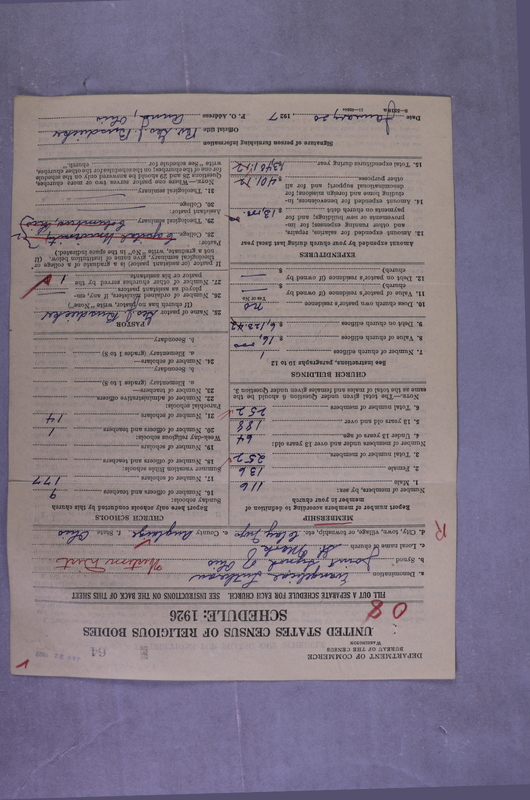 DEPARTMENT OF COMMERCE
BUREAU OF THE CENSUS
WASHINGTON
64
UNITED STATES CENSUS OF RELIGIOUS BODIES
SCHEDULE: 1926
08
FILL OUT A SEPARATE SCHEDULE FOR EACH CHURCH. SEE INSTRUCTIONS ON THE BACK OF THIS SHEET
a. Denomination Evangelical Lutheran
b. Synod Joint Synod of Ohio Western Dist
c. Local name of church St Mark
d. City, town, village, or township, etc. Clay Twp e. County Auglaize f. State Ohio
R
MEMBERSHIP
Report number of members according to definition of member in your church
Number of members, by sex:
1. Male 116
2. Female 136
3. Total number of members 252
Number of members under and over 13 years old:
4. Under 13 years of age 64
5. 13 years old and over 188
6. Total number of members 252
NOTE.—The total given under Question 6 should be the same as the total of males and females given under Question 3.
CHURCH BUILDINGS
See instructions, paragraphs 10 to 12
7. Number of church edifices 1
8. Value of church edifices $ 16,000
9. Debt on church edifices $ 6,123.42
10. Does church own pastor's residence no
Yes or No
11. Value of pastor's residence (if owned by church) $
12. Debt on pastor's residence (if owned by church) $
EXPENDITURES
Amount expended by YOUR church during last fiscal year
13. Amount expended for salaries, repairs, and other running expenses; for improvements or new buildings; and for payments on church debt
14. Amount expended for benevolences, including home and foreign missions; for denominational support; and for all other purposes $ 401.72
15. Total expenditures during year
CHURCH SCHOOLS
Report here only schools conducted by this church
Sunday schools:
16. Number of officers and teachers 9
17. Number of scholars 177
Summer vacation Bible schools:
18. Number of officers and teachers
19. Number of scholars
Week-day religious schools:
20. Number of officers and teachers 1
21. Number of scholars 14
Parochial schools:
22. Number of administrative officers
23. Number of teachers—
a. Elementary (grades 1 to 8)
b. Secondary
24. Number of scholars—
a. Elementary (grades 1 to 8)
b. Secondary
PASTOR
25. Name of pastor
(If church has no pastor, write "None")
26. Number of ordained ministers, if any, employed as pastor's assistants
27. Number of other churches served by the pastor or his assistants 1
If pastor (or assistant pastor) is a graduate of a college or theological seminary, give name of institution below. (If not a graduate, write "No" in the space indicated.)
Pastor:
28. College Capital University
29. Theological seminary Columbus, Ohio
Assistant pastor:
30. College
31. Theological seminary
Signature of person furnishing information
Official title
P. O. Address Anna, Ohio
Date January 20 1927